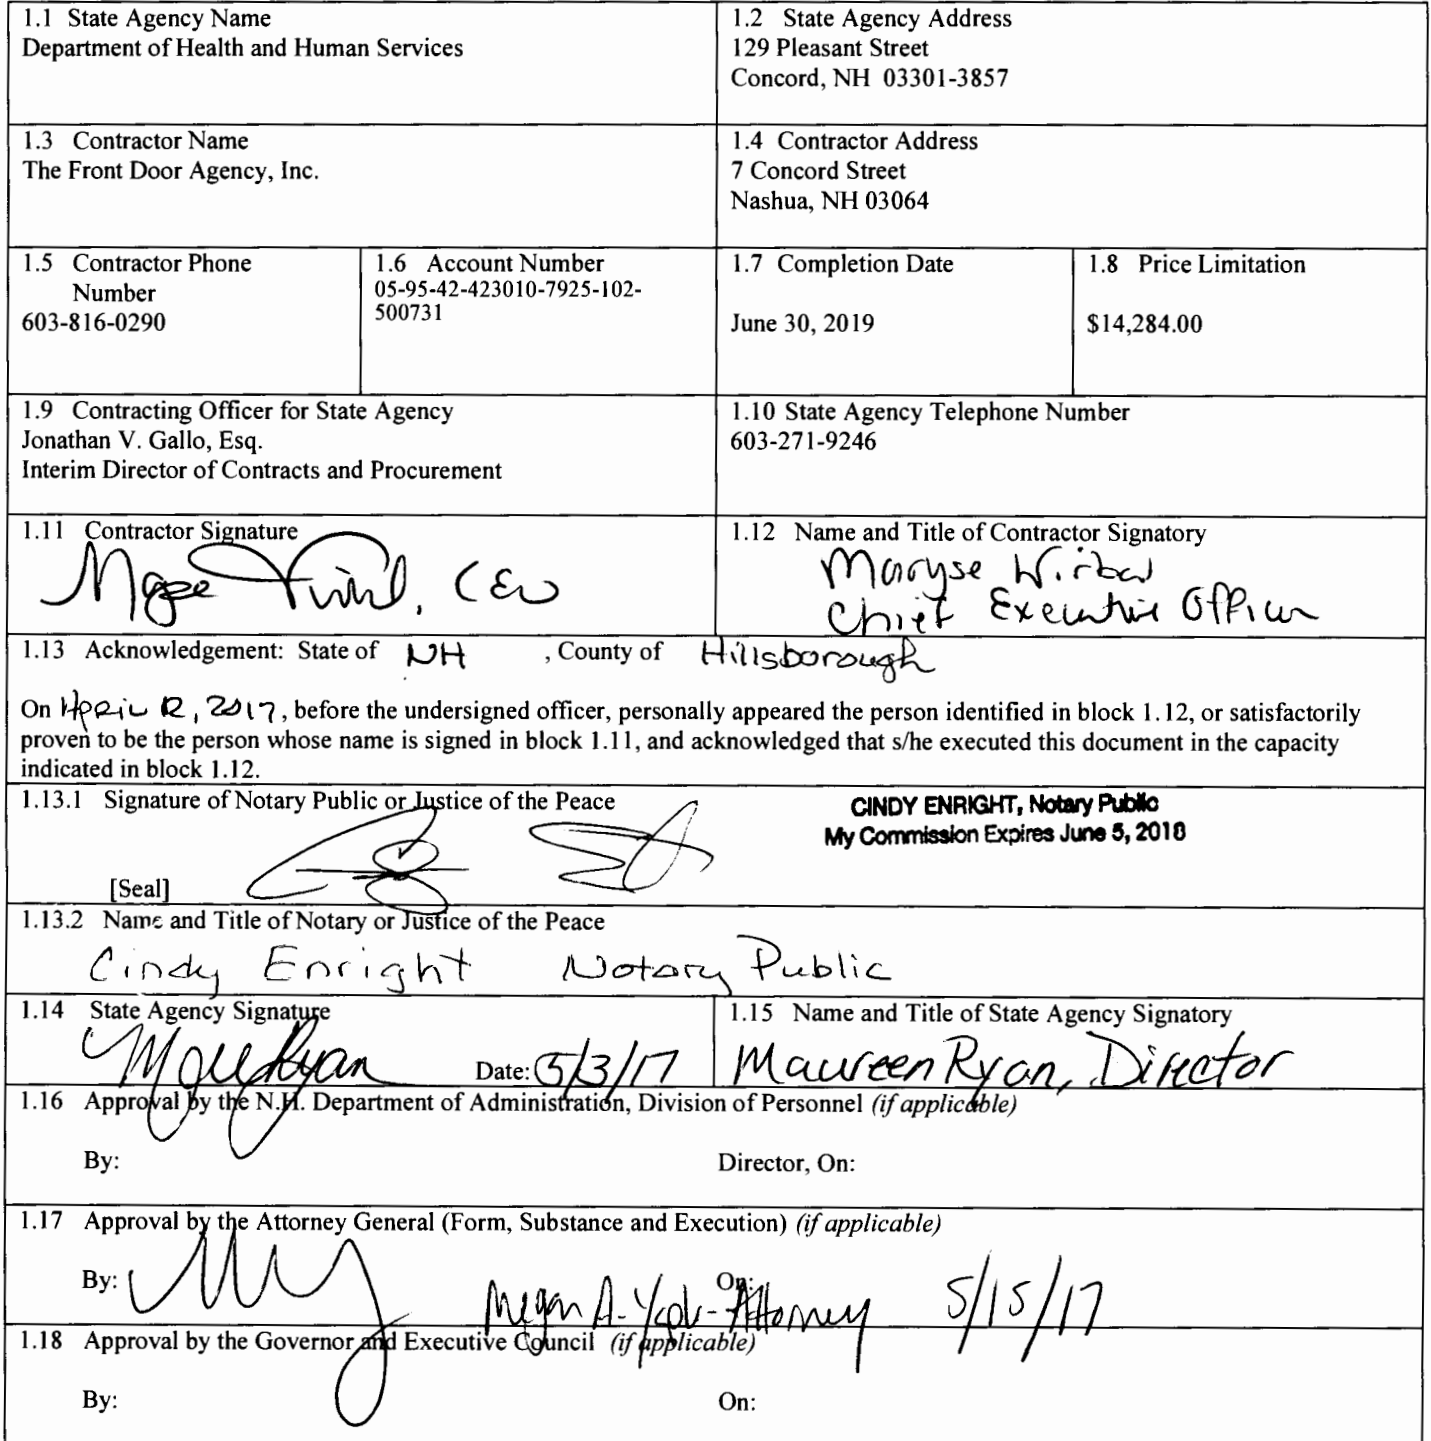 1.1 State Agency Name
Department of Health and Human Services
1.2 State Agency Address
129 Pleasant Street
Concord, NH 03301-3857
1.3 Contractor Name
The Front Door Agency, Inc.
1.4 Contractor Address
7 Concord Street
Nashua, NH 03064
1.5 Contractor Phone
Number
603-816-0290
1.6 Account Number
05-95-42-423010-7925-102-
500731
1.7 Completion Date
June 30, 2019
1.8 Price Limitation
$14,284.00
1.9 Contracting Officer for State Agency
Jonathan V. Gallo, Esq.
Interim Director of Contracts and Procurement
1.10 State Agency Telephone Number
603-271-9246
1.11 Contractor Signature
, CEO
1.12 Name and Title of Contractor Signatory
Maryse Wirbal
Chief Executive Officer
1.13 Acknowledgement: State of NH , County of Hillsborough
On April 12, 2017, before the undersigned officer, personally appeared the person identified in block 1.12, or satisfactorily
proven to be the person whose name is signed in block 1.11, and acknowledged that s/he executed this document in the capacity
indicated in block 1.12.
1.13.1 Signature of Notary Public or Justice of the Peace
CINDY ENRIGHT, Notary Public
My Commission Expires June 5, 2018
[Seal]
1.13.2 Name and Title of Notary or Justice of the Peace
Cindy Enright Notary Public
1.14 State Agency Signature
Date: 5/3/17
1.15 Name and Title of State Agency Signatory
Maureen Ryan, Director
1.16 Approval by the N.H. Department of Administration, Division of Personnel (if applicable)
By: Director, On:
1.17 Approval by the Attorney General (Form, Substance and Execution) (if applicable)
By: On:
Megan A. - Attorney 5/15/17
1.18 Approval by the Governor and Executive Council (if applicable)
By: On: